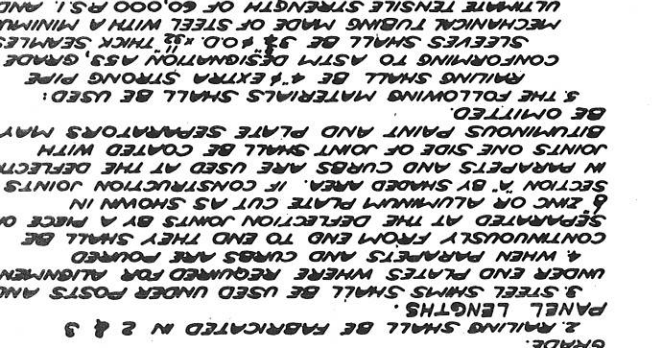 GRADE.
2. RAILING SHALL BE FABRICATED IN 2 & 3
PANEL LENGTHS.
3. STEEL SHIMS SHALL BE USED UNDER POSTS AND
UNDER END PLATES WHERE REQUIRED FOR ALIGNMEN
4. WHEN PARAPETS AND CURBS ARE POURED
CONTINUOUSLY FROM END TO END THEY SHALL BE
SEPARATED AT THE DEFLECTION JOINTS BY A PIECE O
ZINC OR ALUMINUM PLATE CUT AS SHOWN IN
SECTION "A" BY SHADED AREA. IF CONSTRUCTION JOINTS
IN PARAPETS AND CURBS ARE USED AT THE DEFLECT
JOINTS ONE SIDE OF JOINT SHALL BE COATED WITH
BITUMINOUS PAINT AND PLATE SEPARATORS MAY
BE OMITTED.
5. THE FOLLOWING MATERIALS SHALL BE USED:
RAILING SHALL BE 4"φ EXTRA STRONG PIPE
CONFORMING TO ASTM DESIGNATION A53, GRADE
SLEEVES SHALL BE O.D. x THICK SEAMLES
MECHANICAL TUBING MADE OF STEEL WITH A MINIMUM
ULTIMATE TENSILE STRENGTH OF 60,000 P.S.I. AND